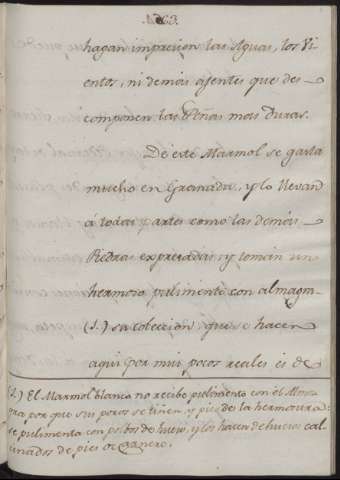 hagan imprecion las Aguas, los Vi
entos, ni demás ajentes que des
componen las Peñas mas Duras.
De este Marmol se gasta
mucho en Granada, y lo llevan
á todas partes como las demás
Piedras expresadas, y toman un
hermoso pulimento con almagra
(S.) sa coleccion que se hacen
aqui por mui pocos reales es de
(S.) El Marmol blanco no recibe pulimento con el Alma
gra por que sus poros se tiñen y pierde la hermosura:
se pulimenta con polbos de hueso, y los hacen de huesos cal
cinados de pies de carnero.